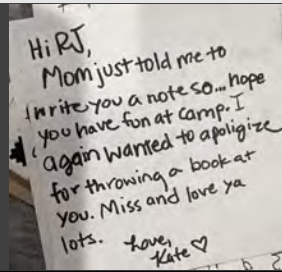 Hi RJ,
Mom just told me to
write you a note so... hope
you have fun at camp. I
again wanted to apoligize
for throwing a book at
you. Miss and love ya
lots. Love,
Kate ♡